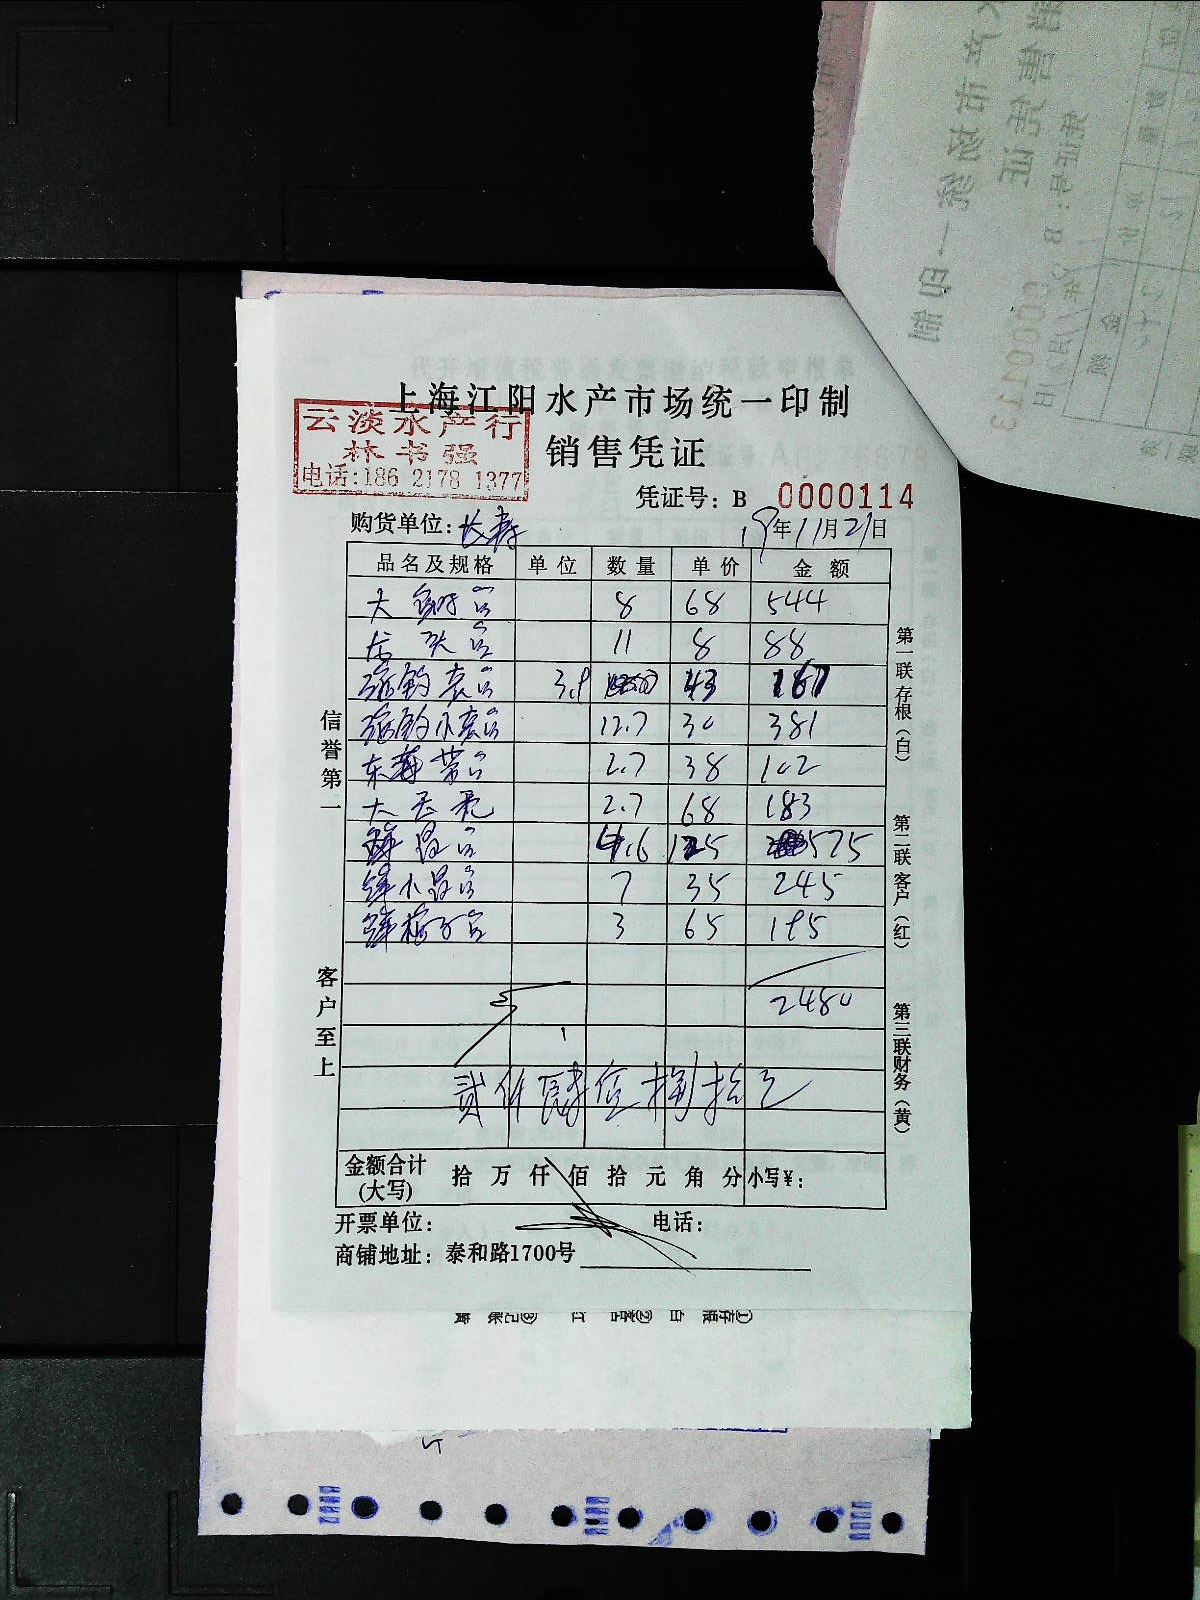 上海江阳水产市场统一印制
云淡水产行
林书强
电话:186 2178 1377
销售凭证
凭证号: B 0000114
购货单位: 长寿 19年11月21日
品名及规格 单位 数量 单价 金额
大 8 68 544
头 11 8 88
钓 3.9 43 167
钓小 12.7 30 381
东海带 2.7 38 102
大 2.7 68 183
鲜 4.6 125 575
鲜小 7 35 245
鲜梅子 3 65 195
2480
贰仟肆佰捌拾元
金额合计(大写) 拾 万 仟 佰 拾 元 角 分 小写¥:
开票单位: 电话:
商铺地址: 泰和路1700号
信誉第一
客户至上
第一联存根(白)
第二联客户(红)
第三联财务(黄)